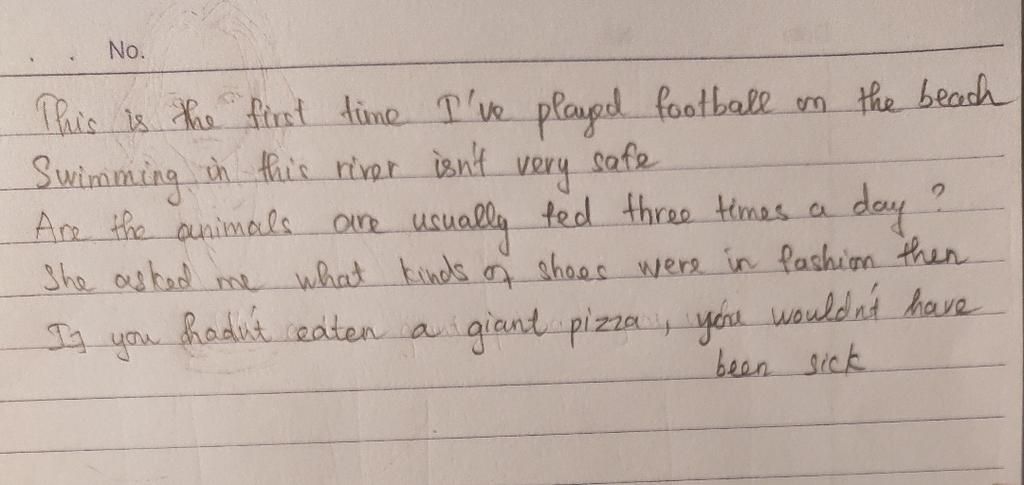 No.
This is the first time I've played football on the beach
Swimming in this river isn't very safe
Are the animals are usually fed three times a day ?
She asked me what kinds of shoes were in fashion then
If you hadn't eaten a giant pizza, you wouldn't have
been sick